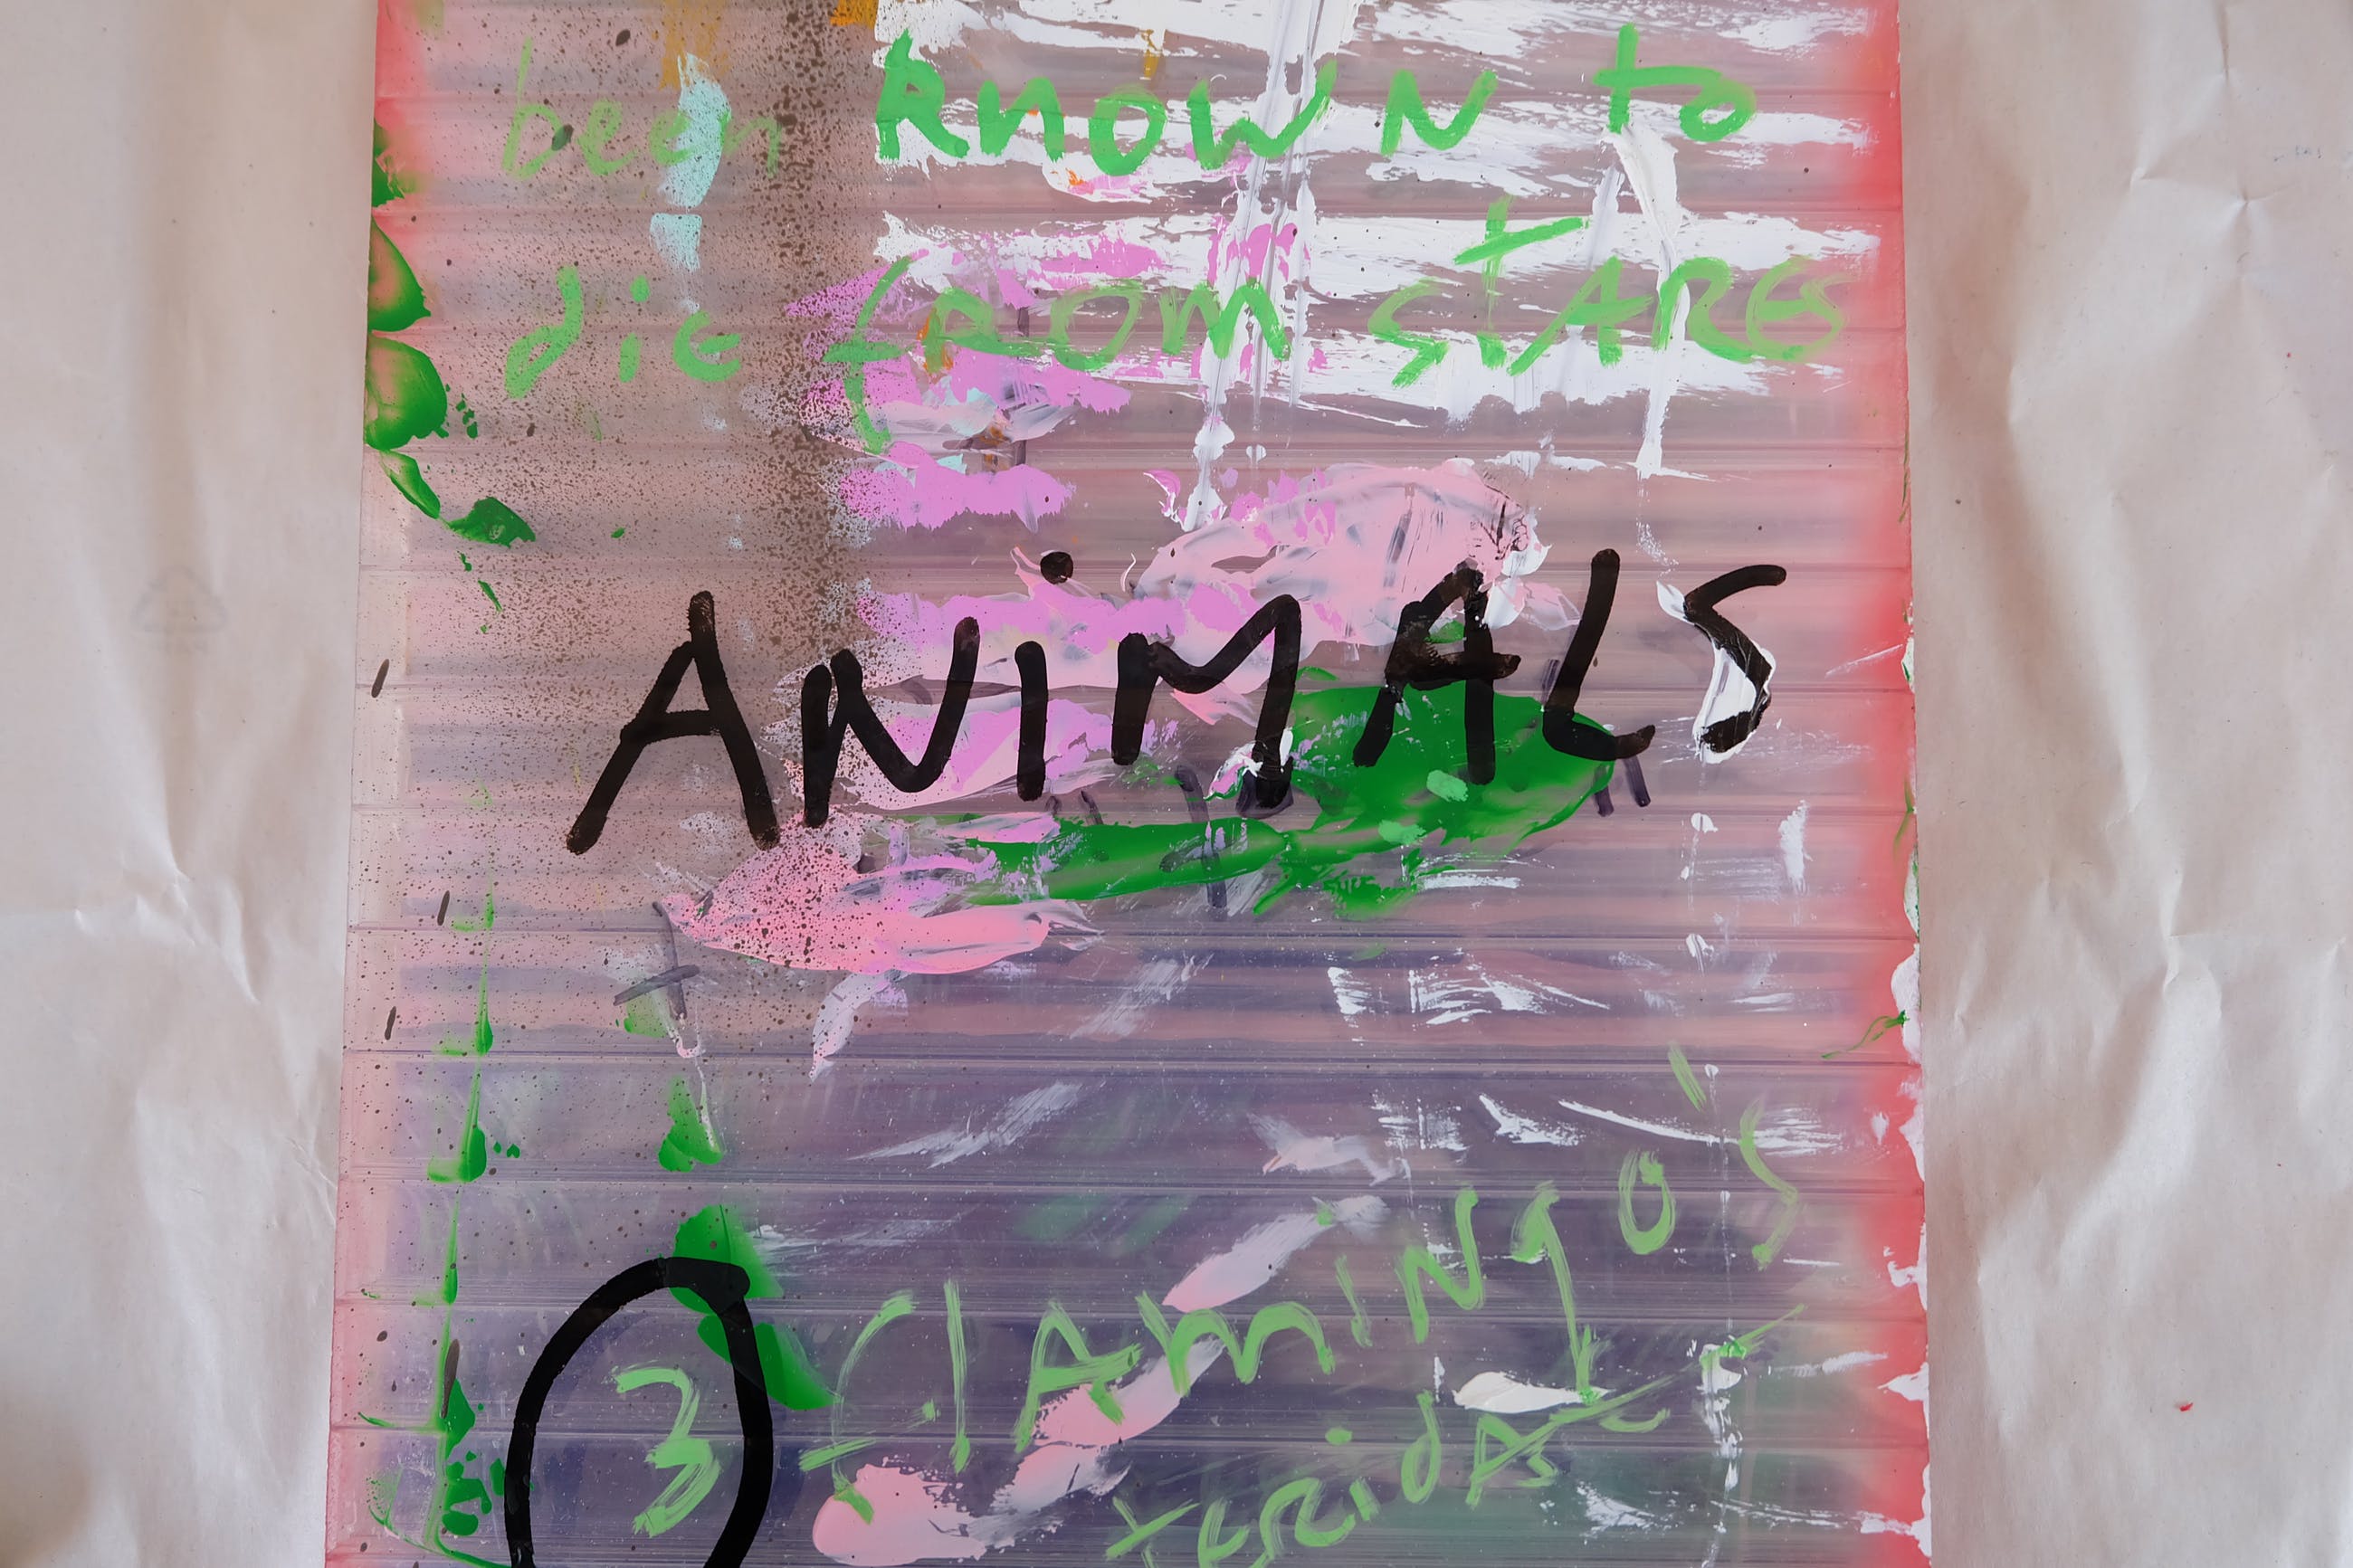 been known to
die from stares
ANiMALS
3 flAmiNgo's